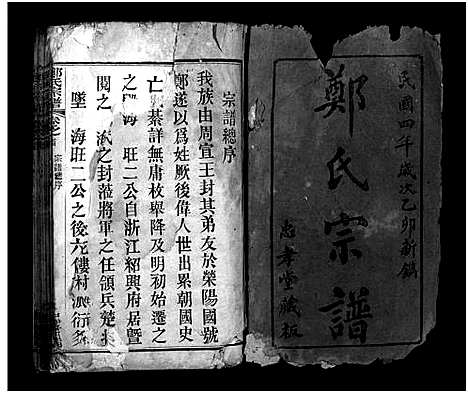 民國四年歲次乙卯新鐫
鄭氏宗譜
忠孝堂藏板
宗譜總序
我族由周宣王封其弟友於滎陽國號
鄭遂以爲姓厥後偉人世出累朝國史
亡 綦詳無庸枚舉降及明初始遷之
之 海 旺二公自浙江紹興府居暨
閱之 派之封蒞將軍之任領兵楚
墜 海旺二公之後 僂村 衍多
鄭氏宗譜 卷之 宗譜總序